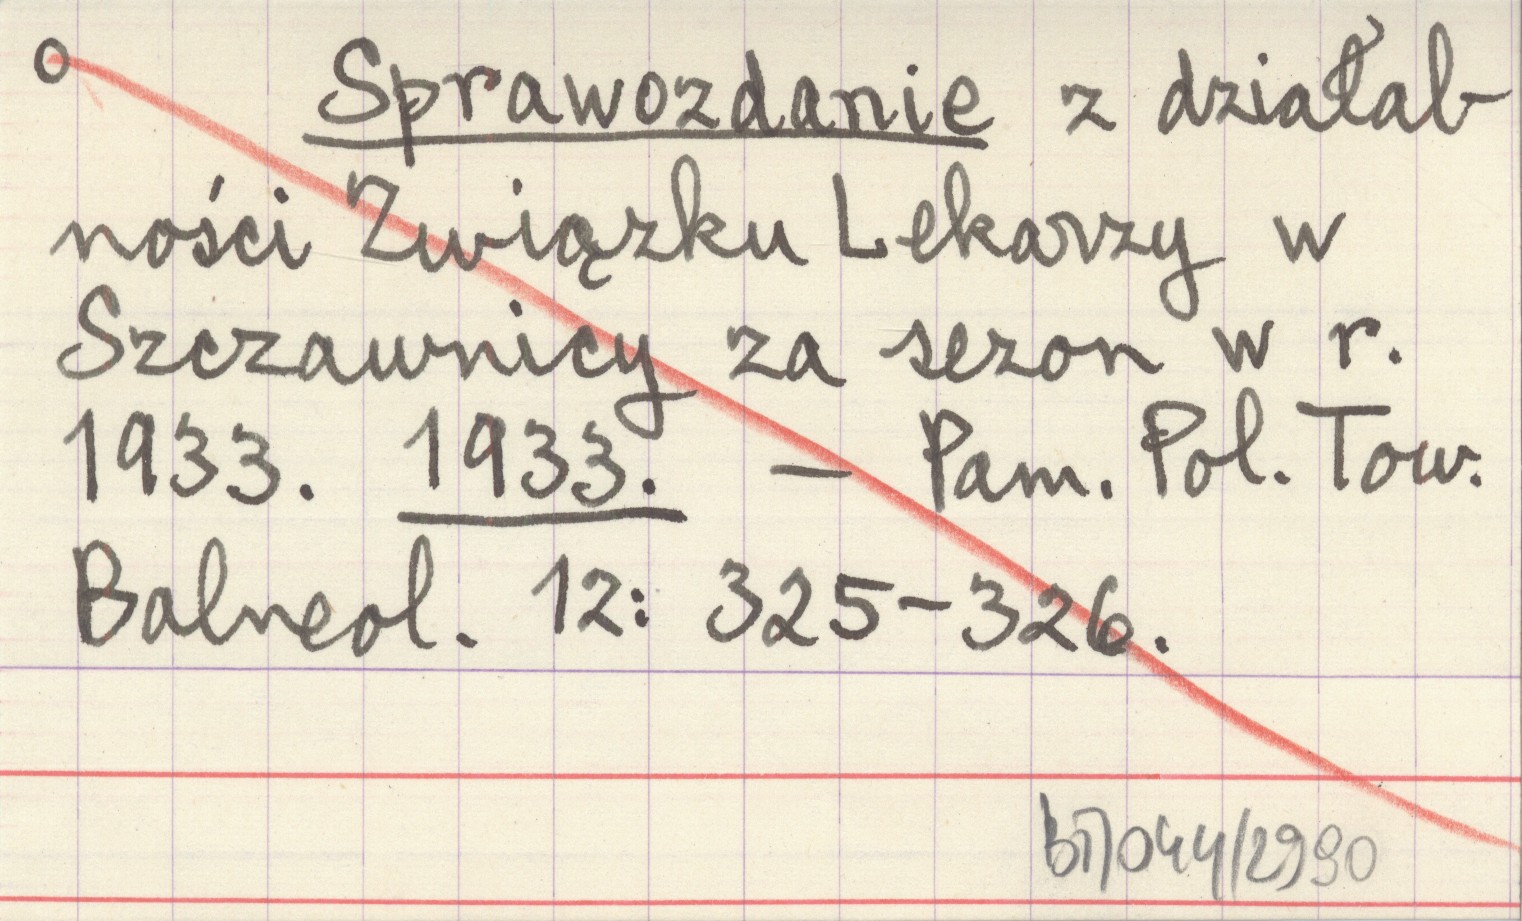 o Sprawozdanie z działal-
ności Związku Lekarzy w
Szczawnicy za sezon w r.
1933. 1933. — Pam. Pol. Tow.
Balneol. 12: 325-326.
044/2990